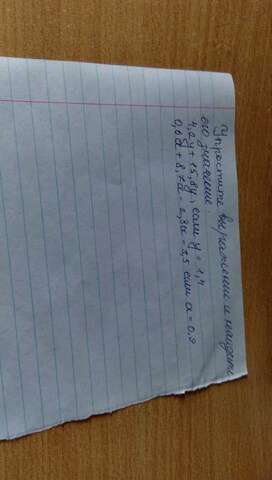 Упростите выражении и найдите
его значение
4,2y + 15,8y, если y = 1,4
0,6a + 8,7a - 2,8a - 3,5 если a = 0,9